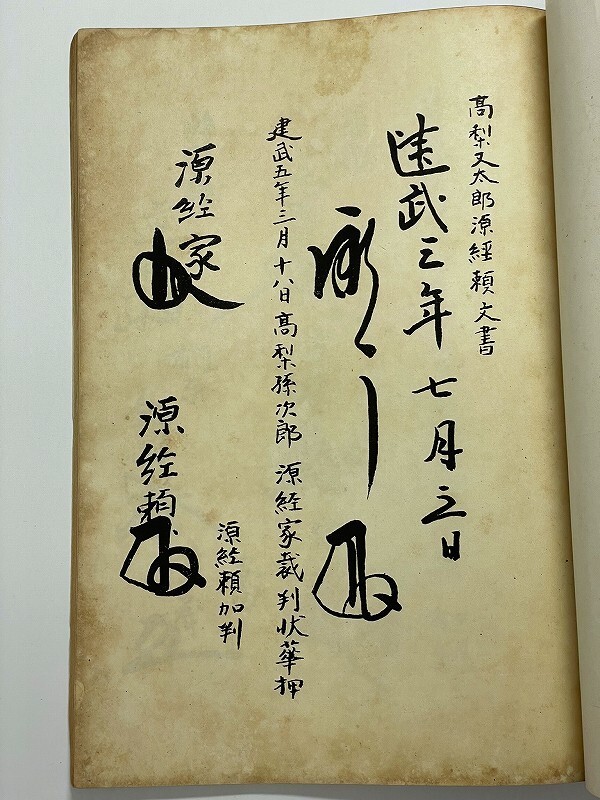 高梨又太郎源經頼文書
建武三年七月三日
建武五年三月十八日高梨孫次郎源経家裁判状華押
源経頼加判
源経家
源経頼